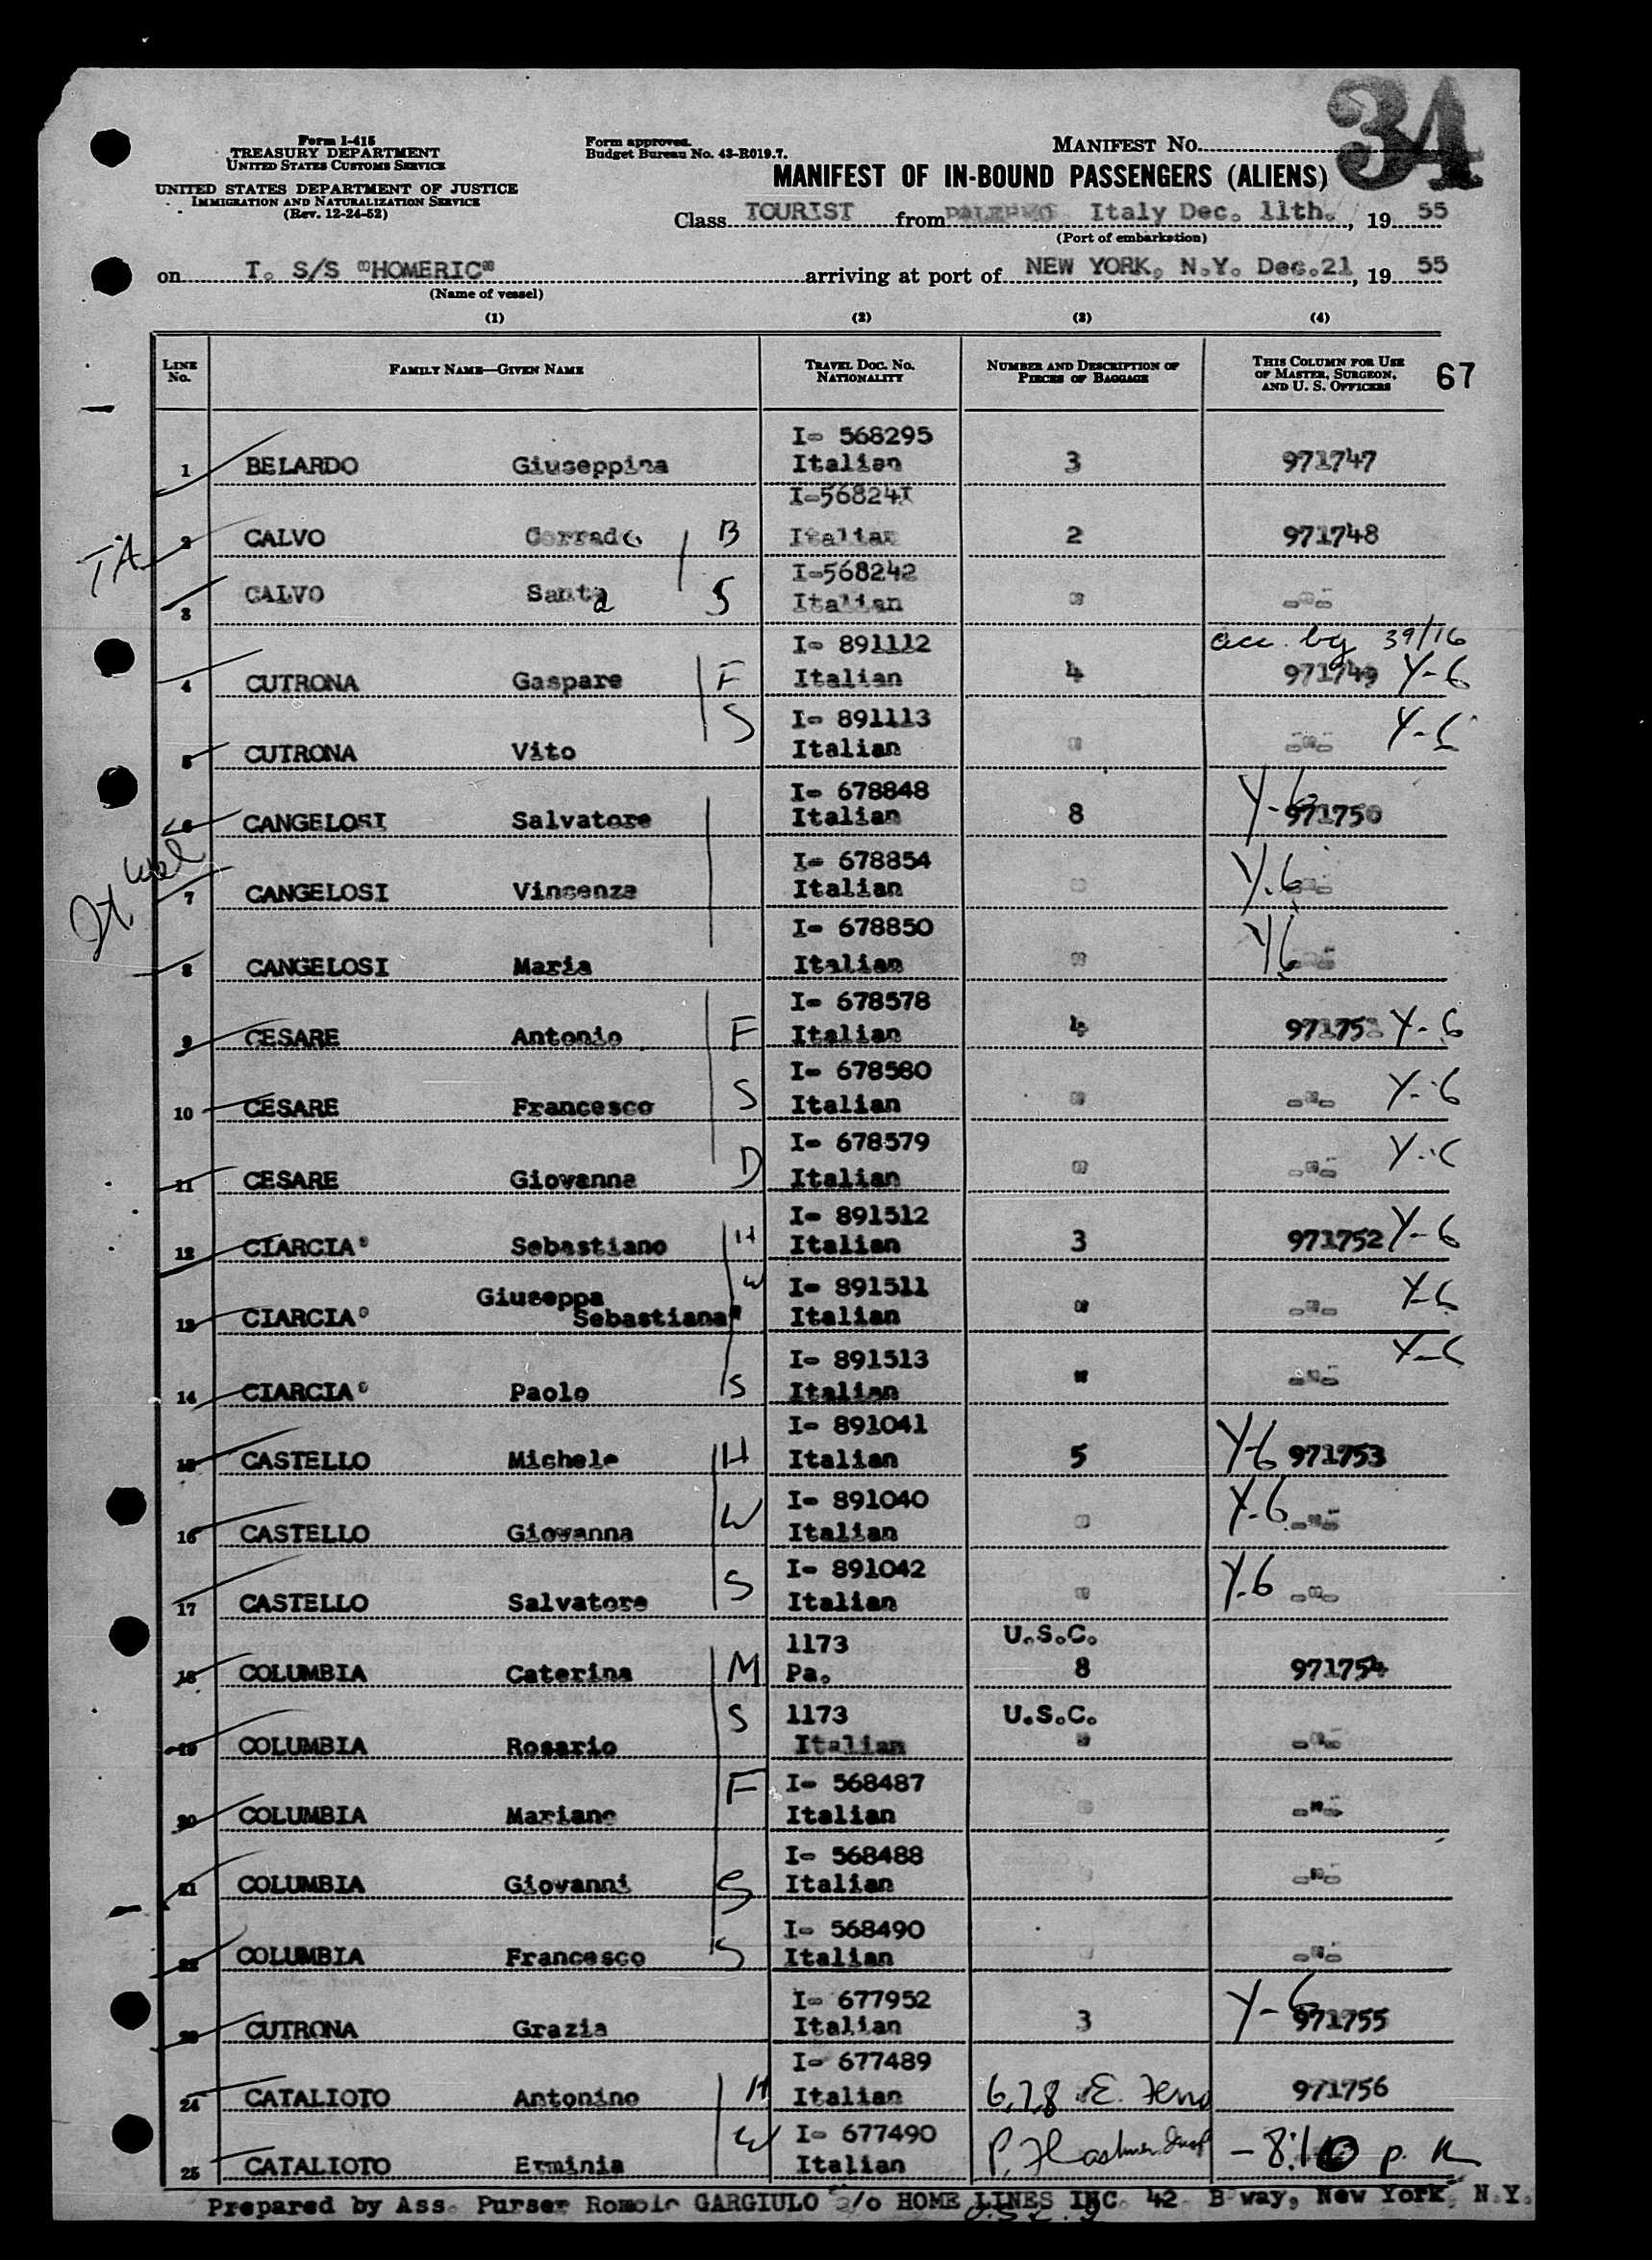 34
Form I-415
TREASURY DEPARTMENT
UNITED STATES CUSTOMS SERVICE
UNITED STATES DEPARTMENT OF JUSTICE
IMMIGRATION AND NATURALIZATION SERVICE
(Rev. 12-24-52)
Form approved.
Budget Bureau No. 43-R019.7.
MANIFEST NO.
MANIFEST OF IN-BOUND PASSENGERS (ALIENS)
Class TOURIST from PALERMO Italy Dec. 11th., 19 55
(Port of embarkation)
on T. S/S "HOMERIC" arriving at port of NEW YORK, N.Y. Dec.21, 19 55
(Name of vessel)
(1) (2) (3) (4)
LINE No. FAMILY NAME—GIVEN NAME TRAVEL DOC. NO. NATIONALITY NUMBER AND DESCRIPTION OF PIECES OF BAGGAGE THIS COLUMN FOR USE OF MASTER, SURGEON, AND U. S. OFFICERS 67
I- 568295
1 BELARDO Giuseppina Italian 3 971747
I-568241
TA 2 CALVO Corrado B Italian 2 971748
I-568242
3 CALVO Santa S Italian " -"-
I- 891112 acc. by 39/16
4 CUTRONA Gaspare F Italian 4 971749 Y-6
S I- 891113 Y-6
5 CUTRONA Vito Italian " -"-
I- 678848 Y-6
6 CANGELOSI Salvatore Italian 8 971750
I- 678854
7 CANGELOSI Vincenza Italian " Y.6 -"-
I- 678850
8 CANGELOSI Maria Italian " Y6 -"-
I- 678578
9 CESARE Antonio F Italian 4 971751 Y-6
I- 678580
10 CESARE Francesco S Italian " -"- Y-6
I- 678579
11 CESARE Giovanna D Italian " -"- Y-6
I- 891512
12 CIARCIA' Sebastiano H Italian 3 971752 Y-6
Giuseppa W I- 891511 Y-6
13 CIARCIA' Sebastiana Italian " -"-
I- 891513 Y-6
14 CIARCIA' Paolo S Italian " -"-
I- 891041
15 CASTELLO Michele H Italian 5 Y-6 971753
I- 891040
16 CASTELLO Giovanna W Italian " Y-6 -"-
I- 891042
17 CASTELLO Salvatore S Italian " Y-6 -"-
1173 U.S.C.
18 COLUMBIA Caterina M Pa. 8 971754
S 1173 U.S.C.
19 COLUMBIA Rosario Italian " -"-
F I- 568487
20 COLUMBIA Mariano Italian " -"-
I- 568488
21 COLUMBIA Giovanni S Italian " -"-
I- 568490
22 COLUMBIA Francesco S Italian " -"-
I- 677952 Y-6
23 CUTRONA Grazia Italian 3 971755
I- 677489
24 CATALIOTO Antonino H Italian 6,7,8 971756
W I- 677490
25 CATALIOTO Erminia Italian - 8:10 p.
Prepared by Ass. Purser Romolo GARGIULO c/o HOME LINES INC. 42 B way, New York N.Y.